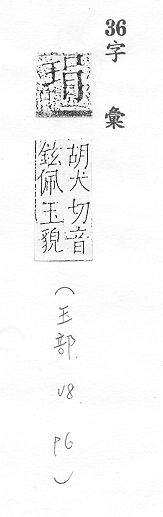 36字彙
琄
胡犬切音
鉉佩玉貌
(玉部 v8 p6)